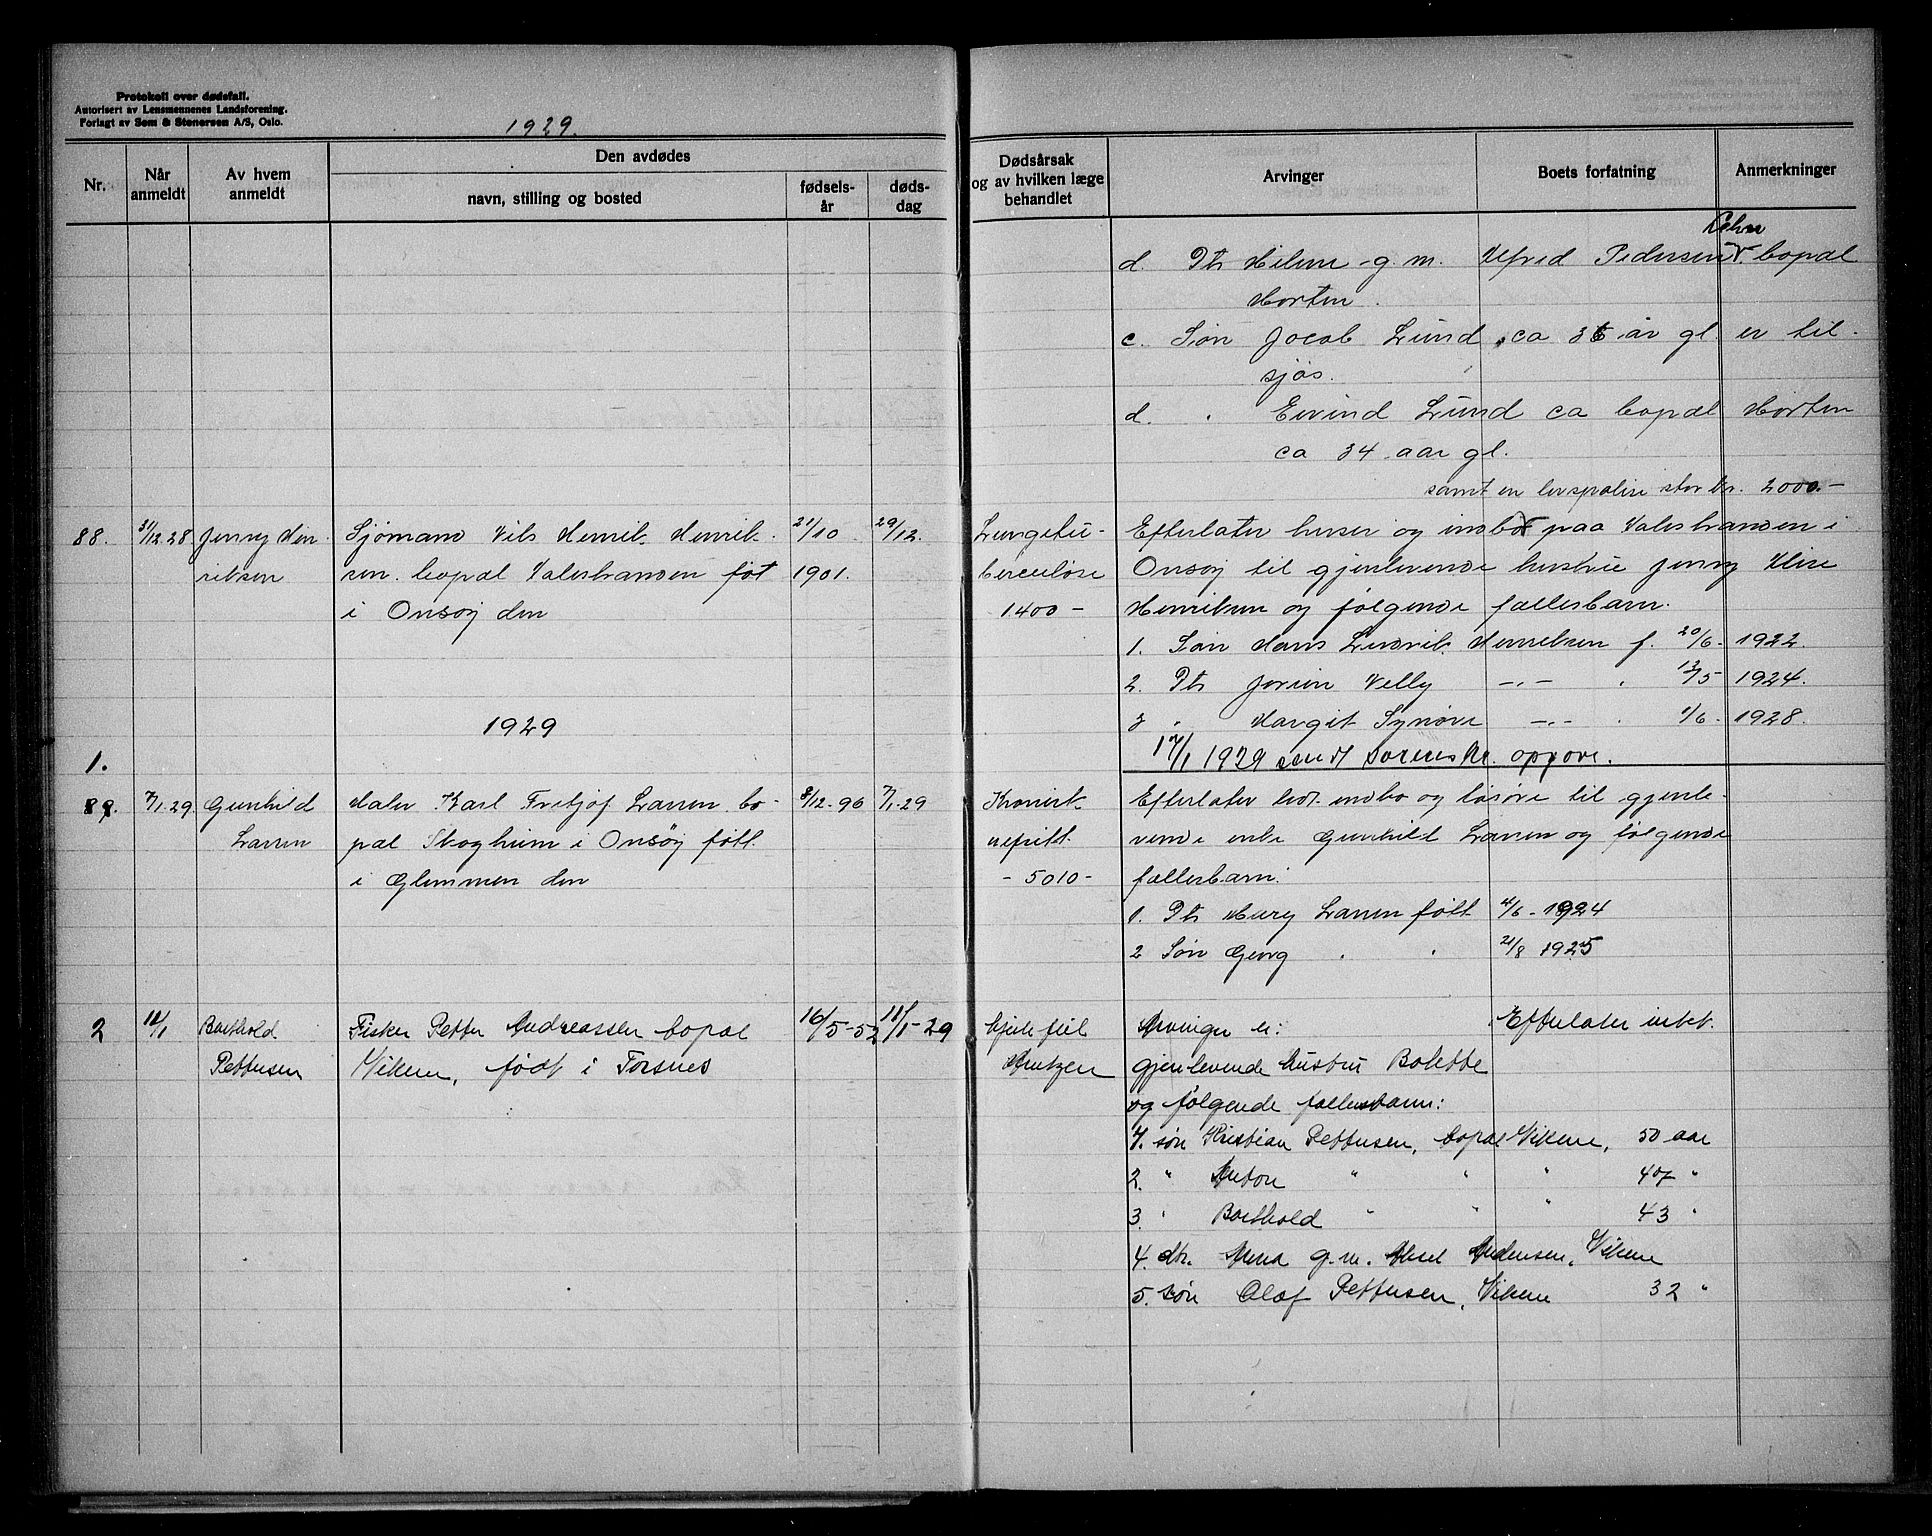 Protokoll over dødsfall.
Autorisert av Lensmennenes Landsforening.
Forlagt av Sem & Stenersen A/S, Oslo.
1929.
Nr.
Når anmeldt
Av hvem anmeldt
Den avdødes
navn, stilling og bosted
fødsels-år
døds-dag
Dødsårsak og av hvilken læge behandlet
Arvinger
Boets forfatning
Anmerkninger
d. Dtr g. m. Alfred Pedersen bopæl
Horten.
c. Søn Jocob Lund ca 36 år gl. er til
sjøs.
d. " Eivind Lund ca bopæl Horten
ca 34 aar gl.
samt en stor kr. 2000.-
88. 31/12.28 Jenny Hen
riksen
Sjømand Nils Henrik Henrik
sen. bopæl Valestranden føt
i Onsøy den
21/10
1901.
29/12.
Lungetu-
berculose
1400 -
Efterlater huser og indbo paa Valestranden i
Onsøy til gjenlevende hustru Jenny
Henriksen og følgende fællesbarn.
1. Søn Hans Ludvik Henriksen f. 20/6 - 1922.
2. Dtr Jorun Velly -"- " 13/5 1924.
3 " Margit Synøve -"- " 1/6 - 1928.
17/1 1929 sendt sorenskr. opgave.
1929
1.
89. 7/1.29. Gunhild
Larsen
Maler Karl Fritjof Larsen bo-
pæl Skogheim i Onsøy født
i Glemmen den
8/12-96
7/1-29
Kronisk
nefritt.
- 5010 -
Efterlater indbo og løsøre til gjenle-
vende enke Gunhild Larsen og følgende
fællesbarn:
1. Dtr Mary Larsen født 4/6 - 1924
2 Søn Georg " " 21/8 1925
2 12/1 Barthold
Pettersen
Fisker Petter Andreassen bopæl
Vikene, født i Torsnes
16/5-52
11/1-29
hjertefeil
Arntzen
Arvinger er:
gjenlevende hustru Bolette
og følgende fællesbarn:
Efterlater intet.
1. søn Kristian Pettersen, bopæl Vikene, 50 aar
2. " Anton " " " 47 "
3. " Barthold " " " 43 "
4. dtr. Anna g.m. Aksel Andersen, Vikene
5. søn Olaf Pettersen, Vikene 32 "